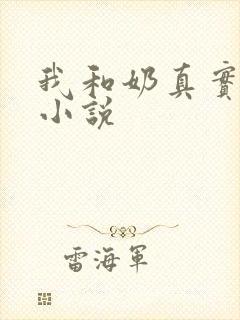 我和奶真實
小說
雷海軍